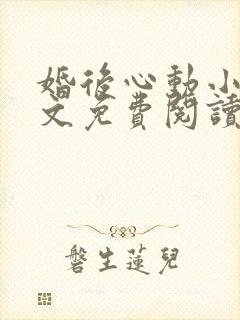 婚後心動小
文免費閱讀
磐生蓮兒